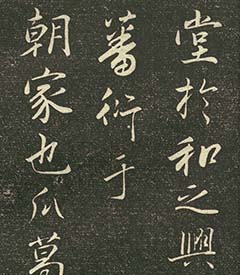 堂於和之興
蕃衍于
朝家也瓜葛